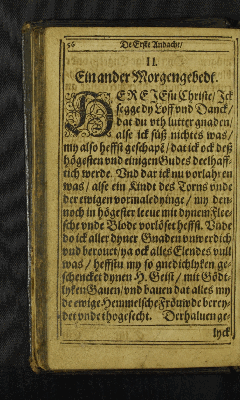 56 De Erste Andacht/
II.
Ein ander Morgengebedt.
HERE JEsu Christe/ Jck
segge dy Loff vnd Danck/
dat du vth lutter gnaden/
alse ick süß nichtes was/
my also heffst geschapē/ dat ick ock deß
högesten vnd einigen Gudes deelhaff-
tich werde. Vnd dat ick nu vorlahren
was/ alse ein Kindt des Torns vnde
der ewigen vormaledyinge/ my den-
noch in högester leeue mit dynem Flee-
sche vnde Blode vorlöset heffst. Vnde
do ick aller dyner Gnaden vnwerdich
vnd berouet/ ya ock alles Elendes vull
was/ heffstu my so gnedichlyken ge-
schencket dynen H. Geist/ mit Gödt-
lyken Gauen/ vnd bauen dat alles my
de ewige Hemmelsche Fröuwde berey-
det vnde thogesecht. Derhaluen ge-
lyck